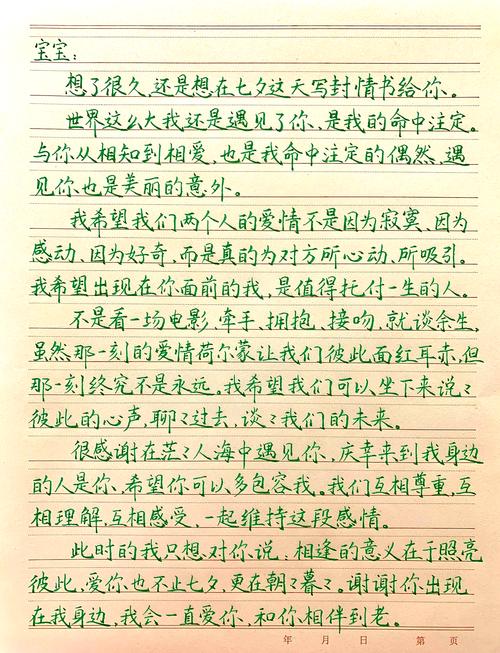 宝宝：
想了很久,还是想在七夕这天写封情书给你。
世界这么大我还是遇见了你,是我的命中注定。
与你从相知到相爱,也是我命中注定的偶然,遇
见你也是美丽的意外。
我希望我们两个人的爱情不是因为寂寞、因为
感动、因为好奇,而是真的为对方所心动、所吸引。
我希望出现在你面前的我,是值得托付一生的人。
不是看一场电影、牵手、拥抱、接吻,就谈余生,
虽然那一刻的爱情荷尔蒙让我们彼此面红耳赤,但
那一刻终究不是永远。我希望我们可以坐下来说〻
彼此的心声,聊〻过去,谈〻我们的未来。
很感谢在茫〻人海中遇见你,庆幸来到我身边
的人是你,希望你可以多包容我。我们互相尊重,互
相理解,互相感受,一起维持这段感情。
此时的我只想对你说：相逢的意义在于照亮
彼此,爱你也不止七夕,更在朝〻暮〻。谢谢你出现
在我身边,我会一直爱你,和你相伴到老。
年 月 日 第 页